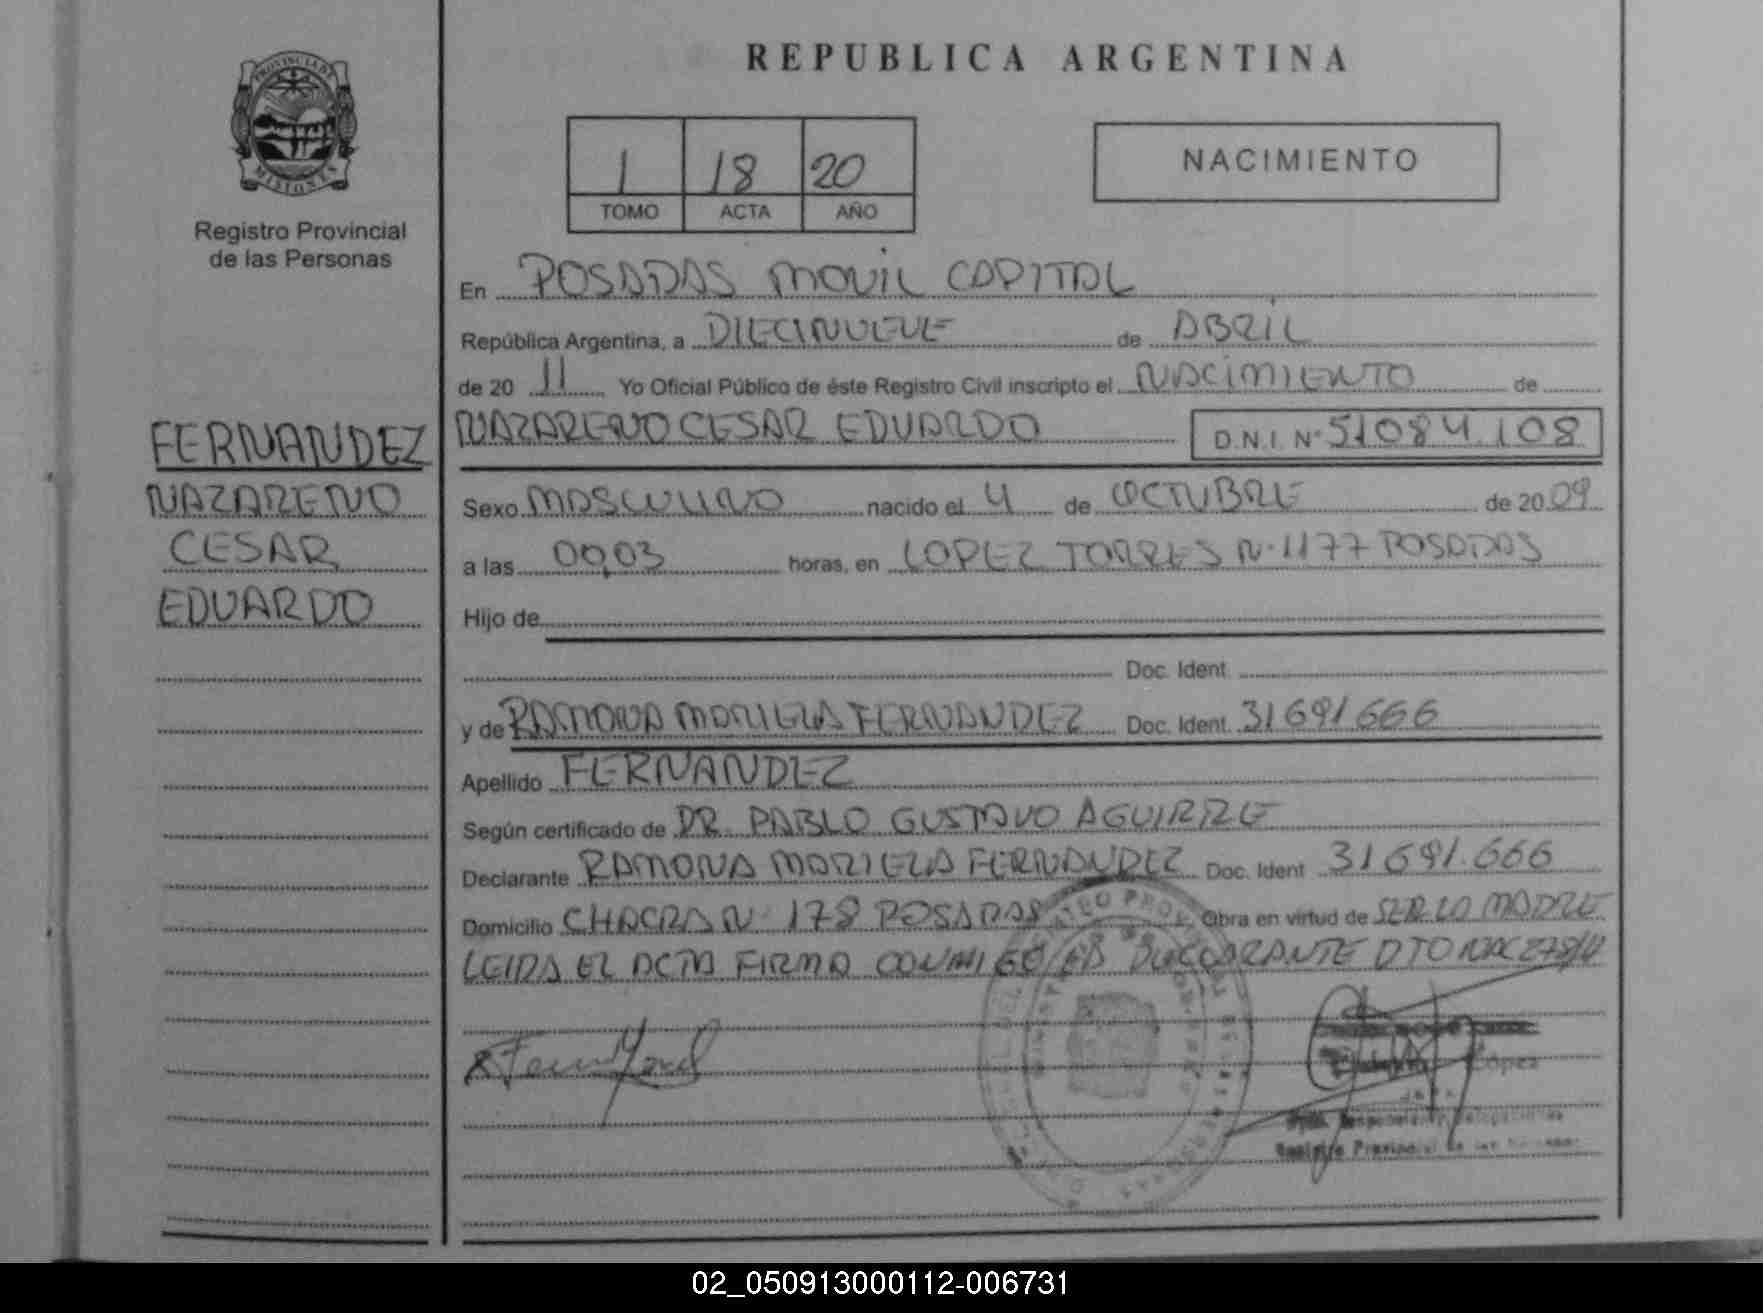 REPUBLICA ARGENTINA
PROVINCIA DE
MISIONES
Registro Provincial
de las Personas
1 18 20
TOMO ACTA AÑO
NACIMIENTO
En POSADAS MOVIL CAPITAL
República Argentina, a DIECINUEVE de ABRIL
de 20 11 Yo Oficial Público de éste Registro Civil inscripto el NACIMIENTO de
NAZARENO CESAR EDUARDO D.N.I. Nº 51084.108
FERNANDEZ
NAZARENO
CESAR
EDUARDO
Sexo MASCULINO nacido el 4 de OCTUBRE de 20 09
a las 00,03 horas, en LOPEZ TORRES N· 1177 POSADAS
Hijo de
Doc. Ident.
y de RAMONA MARIELA FERNANDEZ Doc. Ident. 31691666
Apellido FERNANDEZ
Según certificado de DR. PABLO GUSTAVO AGUIRRE
Declarante RAMONA MARIELA FERNANDEZ Doc. Ident 31691.666
Domicilio CHACRA N· 178 POSADAS Obra en virtud de SER LA MADRE
LEIDA EL ACTA FIRMA CONMIGO
López
Registro Provincial de las Personas
02_050913000112-006731